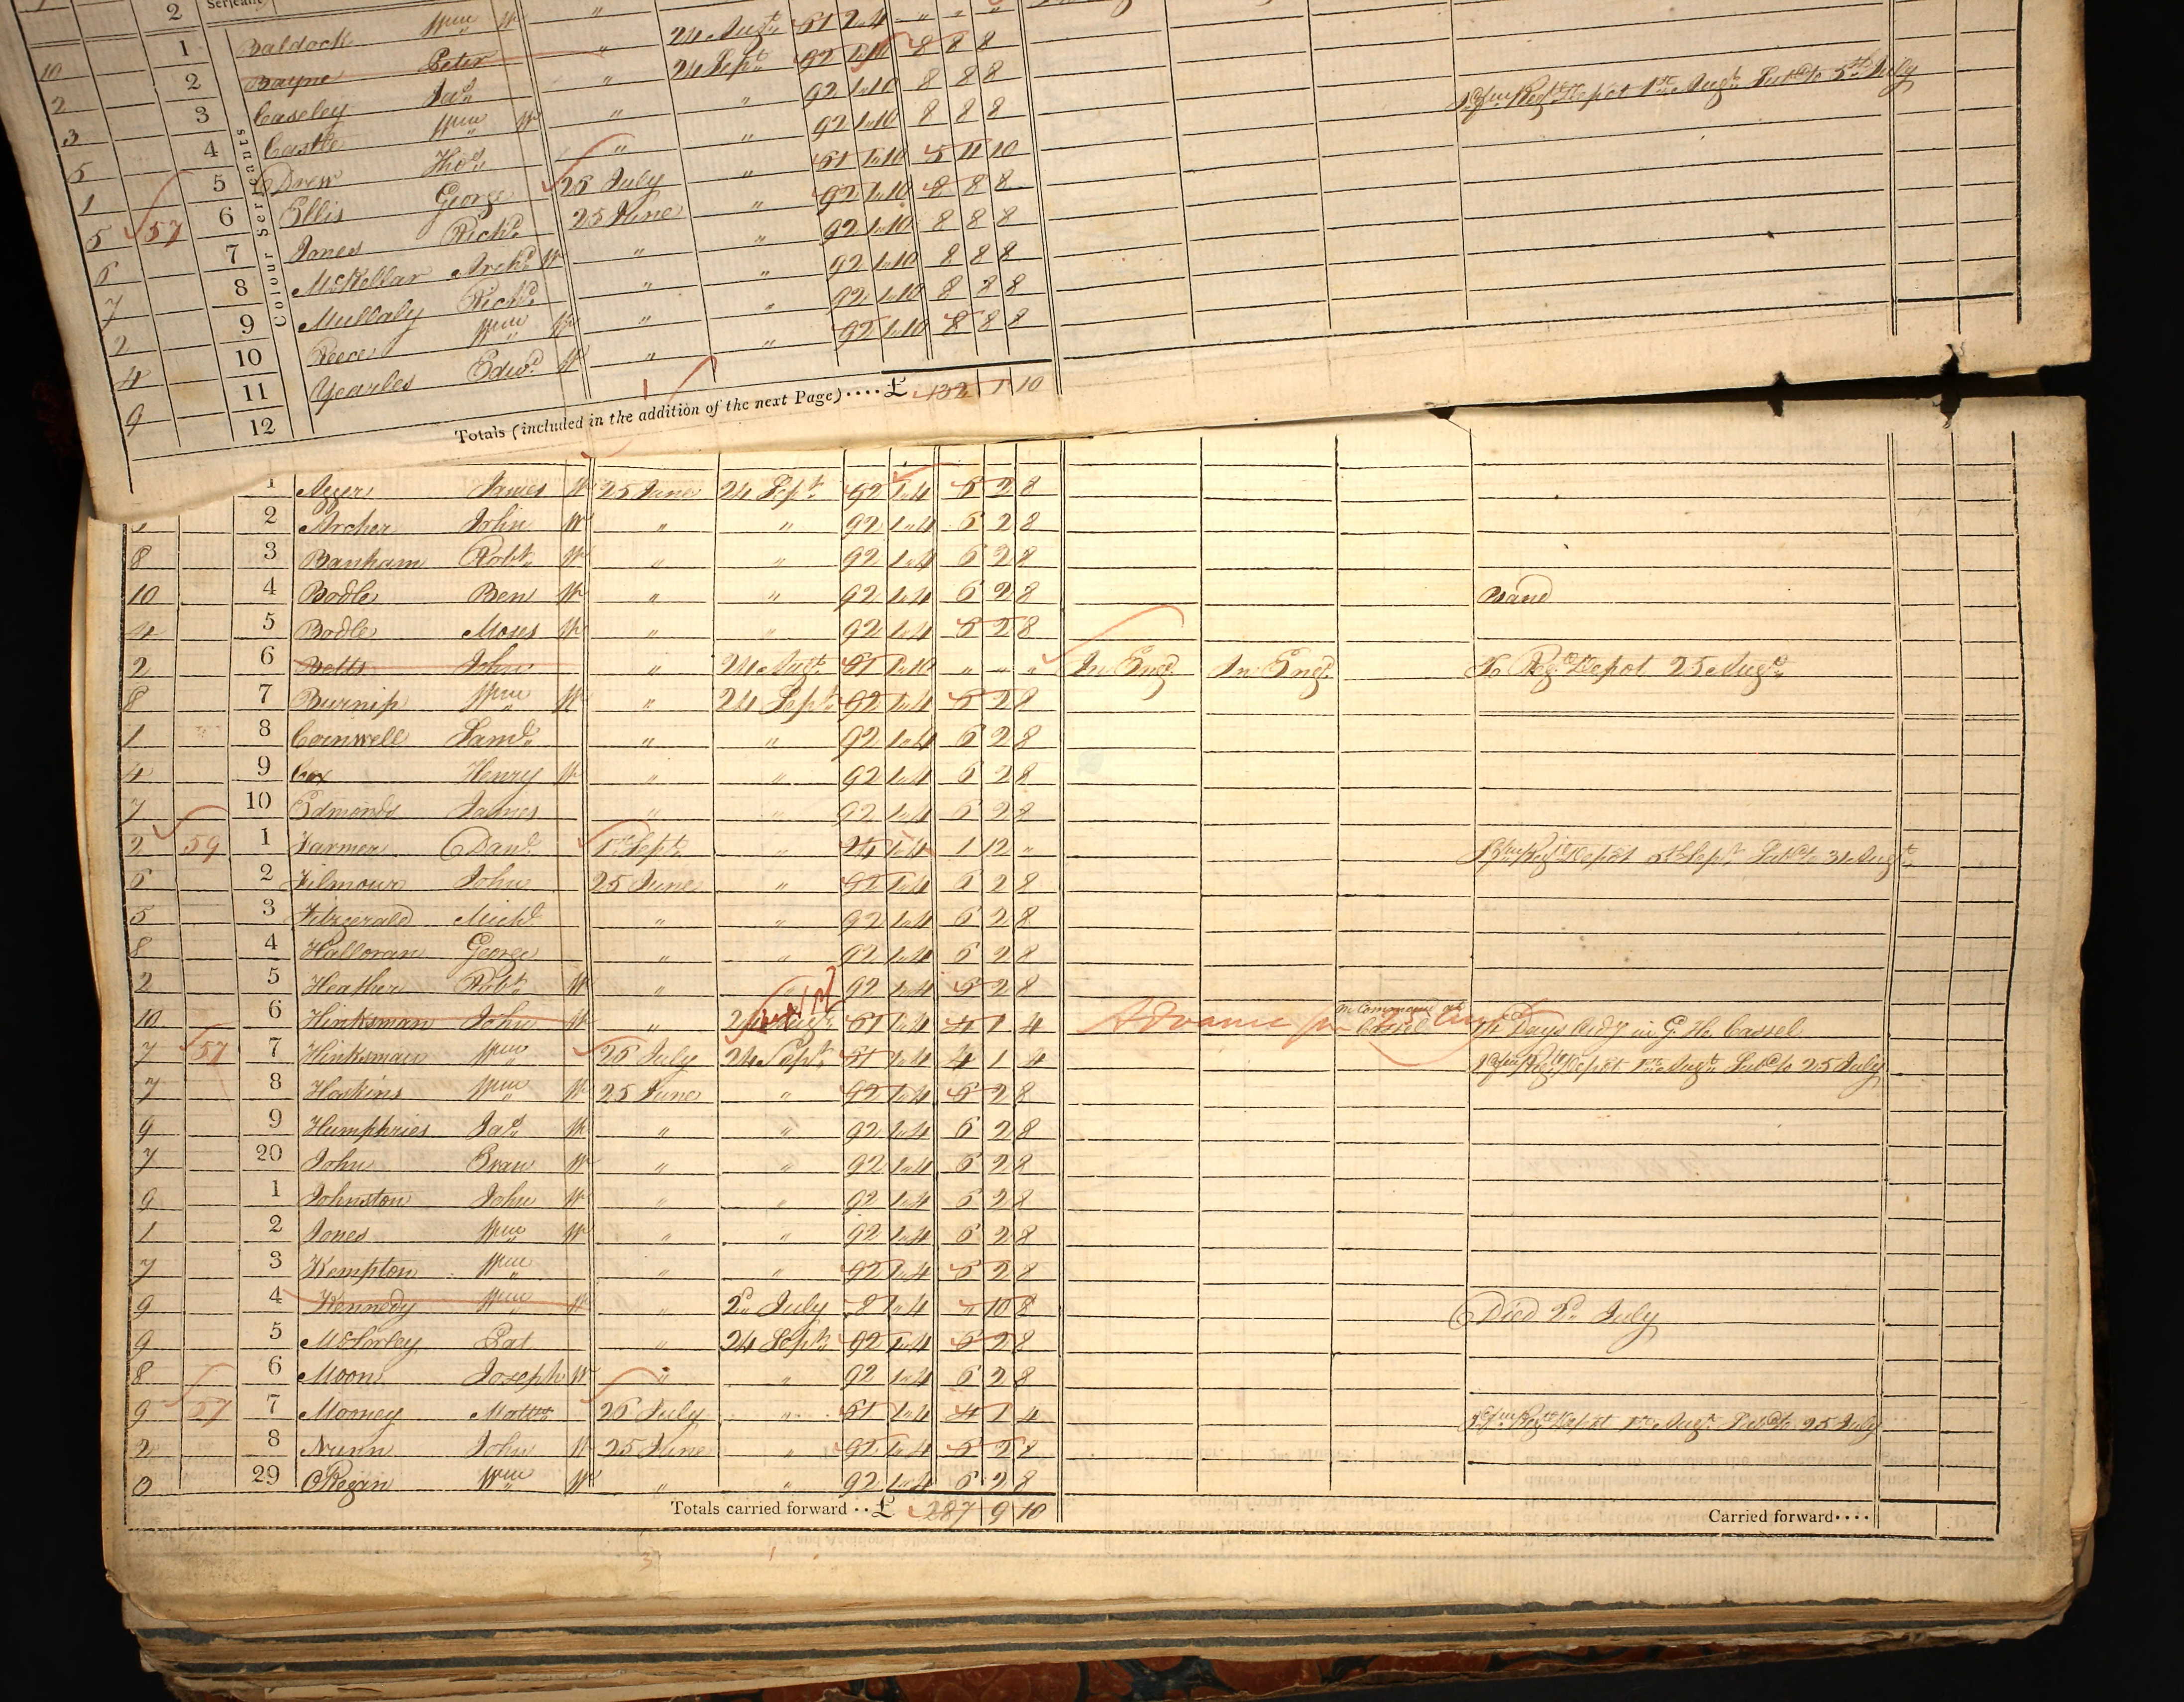 2 Serjeant
1 Baldock Wm W " 24 Augt. 61 2"4 " " "
10 2 Bayne Peter " 24 Sept. 92 1"10 8 8 8
2 3 Caseley Jas. " " 92 1"10 8 8 8
3 4 Castle Wm W " " 92 1"10 8 8 8
5 5 Drew Thos. 26 July " 61 1"10 5 11 10
1 57 6 Ellis George 25 June " 92 1"10 8 8 8
5 7 Jones Richd. " " 92 1"10 8 8 8
6 8 McKellar Archd. W " " 92 1"10 8 8 8
7 9 Mullaly Richd. " " 92 1"10 8 8 8
2 10 Reece Wm W " " 92 1"10 8 8 8
4 11 Yearles Edwd. W
9 12
Colour Serjeants
Totals (included in the addition of the next Page) .... £ 132 1 10
1 Agger James W 25 June 24 Sept. 92 1"4 6 2 8
2 Archer John W " " 92 1"4 6 2 8
8 3 Banham Robt. W " " 92 1"4 6 2 8
10 4 Bodle Ben W " " 92 1"4 6 2 8 Band
4 5 Bodle Moses W " " 92 1"4 6 2 8
2 6 Betts John " 24 Augt. 61 1"10 " " " In Engd. In Engd. To Regl. Depot 25 Augt.
8 7 Burnip Wm W " 24 Sept. 92 1"4 6 2 8
1 8 Cornwell Saml. " " 92 1"4 6 2 8
4 9 Cox Henry W " " 92 1"4 6 2 8
7 10 Edmonds James " " 92 1"4 6 2 8
2 59 1 Farmer Danl. 1st Sept. " 24 1"4 1 12 "
6 2 Filmour John 25 June " 92 1"4 6 2 8
5 3 Fitzgerald Michl. " " 92 1"4 6 2 8
8 4 Halloran George " " 92 1"4 6 2 8
2 5 Heather Robt. W " " 92 1"4 6 2 8
10 6 Hinksman John W " 24 Augt. 61 1"4 4 1 4 Advance pr 25 Augt. In Command at Cassel Days Subsy in G. H. Cassel
7 57 7 Hinksman Wm 26 July 24 Sept. 61 1"4 4 1 4 fm Regl. Depot 1st Augt. Subd. to 25 July
7 8 Hoskins Wm W 25 June " 92 1"4 6 2 8
9 9 Humphries Jas. W " " 92 1"4 6 2 8
7 20 John Evan W " " 92 1"4 6 2 8
9 1 Johnston John W " " 92 1"4 6 2 8
1 2 Jones Wm W " " 92 1"4 6 2 8
7 3 Kempton Wm " " 92 1"4 6 2 8
9 4 Kennedy Wm W " 2d. July 8 1"4 " 10 8 Died 2d. July
9 5 McSorley Pat " 24 Sept. 92 1"4 6 2 8
8 6 Moon Joseph W " " 92 1"4 6 2 8
9 57 7 Mooney Mattw. 26 July " 61 1"4 4 1 4 fm Regl. Depot 1st Augt. Subd. to 25 July
2 8 Nunn John W 25 June " 92 1"4 6 2 8
3 29 O'Regan Wm W " " 92 1"4 6 2 8
Totals carried forward .. £ 287 9 10 Carried forward ....